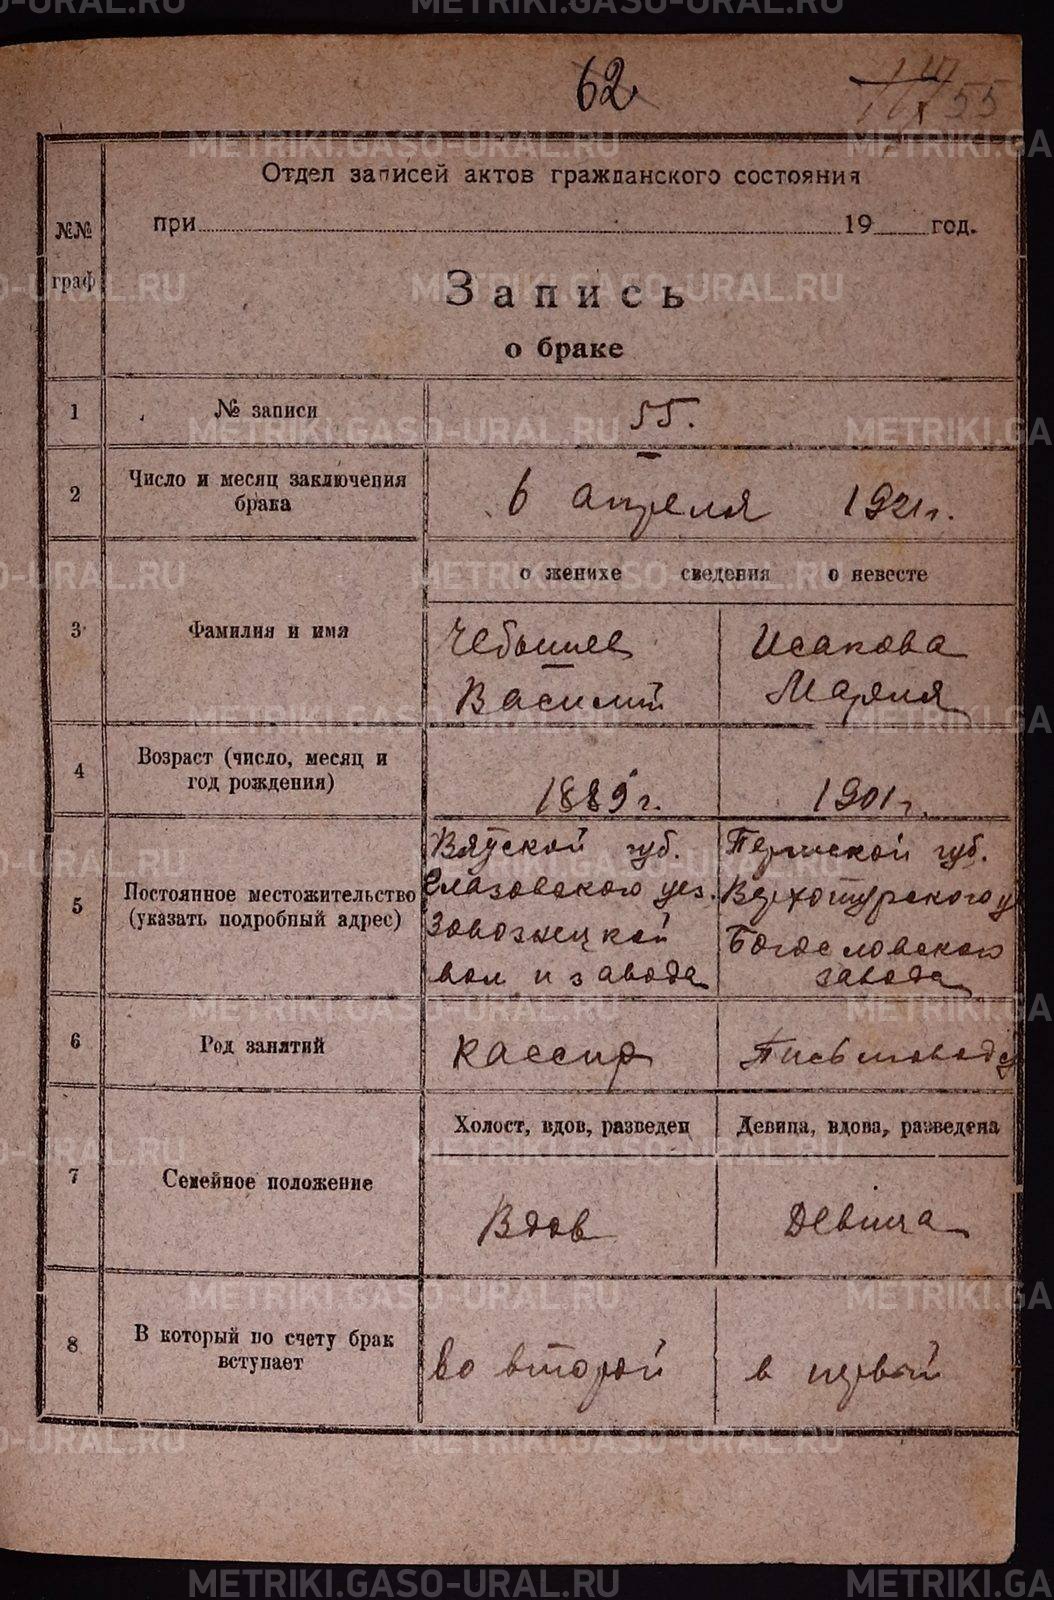 62
55
Отдел записей актов гражданского состояния
при 19 год.
№№
граф
Запись
о браке
1 № записи 55.
2 Число и месяц заключения
брака
6 апреля 1921 г.
о женихе сведения о невесте
3 Фамилия и имя
Чебышев Исакова
Василий Мария
4 Возраст (число, месяц и
год рождения)
1889 г. 1901 г.
5 Постоянное местожительство
(указать подробный адрес)
Вятской губ. Пермской губ.
Глазовского уез. Верхотурского у
вол и завода Богословского
завода
6 Род занятий Кассир Письмоводу
Холост, вдов, разведен Девица, вдова, разведена
7 Семейное положение
Вдов Девица
8 В который по счету брак
вступает
во второй в первый
METRIKI.GASO-URAL.RU